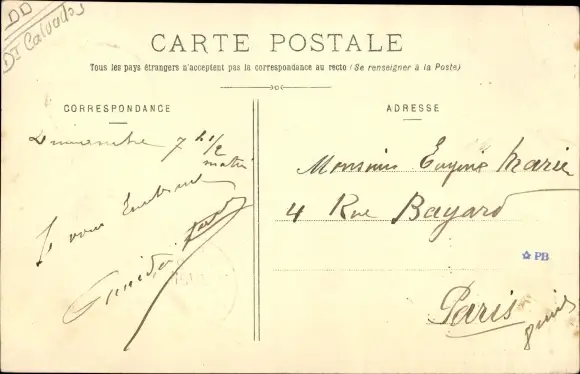 DD
Dt Calvados
CARTE POSTALE
Tous les pays étrangers n'acceptent pas la correspondance au recto (Se renseigner à la Poste)
CORRESPONDANCE
7 h 1/2
matin
Je vous Embrasse
ADRESSE
Monsieur Eugène Marie
4 Rue Bayard
PB
Paris